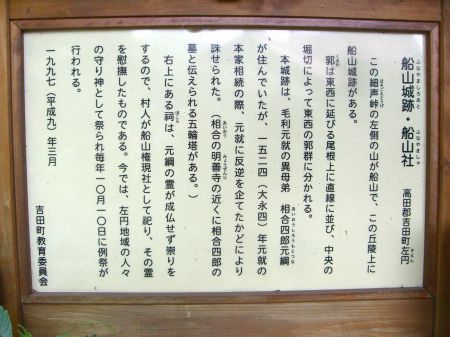 船山城跡・船山社
ふなやましろあと
ふなやましゃ
高田郡吉田町左円
さえん
この細声峠の左側の山が船山で、この丘陵上に
船山城跡がある。
郭は東西に延びる尾根上に直線に並び、中央の
くるわ
堀切によって東西の郭群に分かれる。
本城跡は、毛利元就の異母弟 相合四郎元綱
が住んでいたが、一五二四(大永四)年元就の
本家相続の際、元就に反逆を企てたかどにより
誅せられた。(相合の明善寺の近くに相合四郎の
墓と伝えられる五輪塔がある。)
右上にある祠は、元綱の霊が成仏せず祟りを
ほこら
するので、村人が船山権現社として祀り、その霊
を慰撫したものである。今では、左円地域の人々
の守り神として祭られ毎年一〇月一〇日に例祭が
行われる。
一九九七(平成九)年三月
吉田町教育委員会